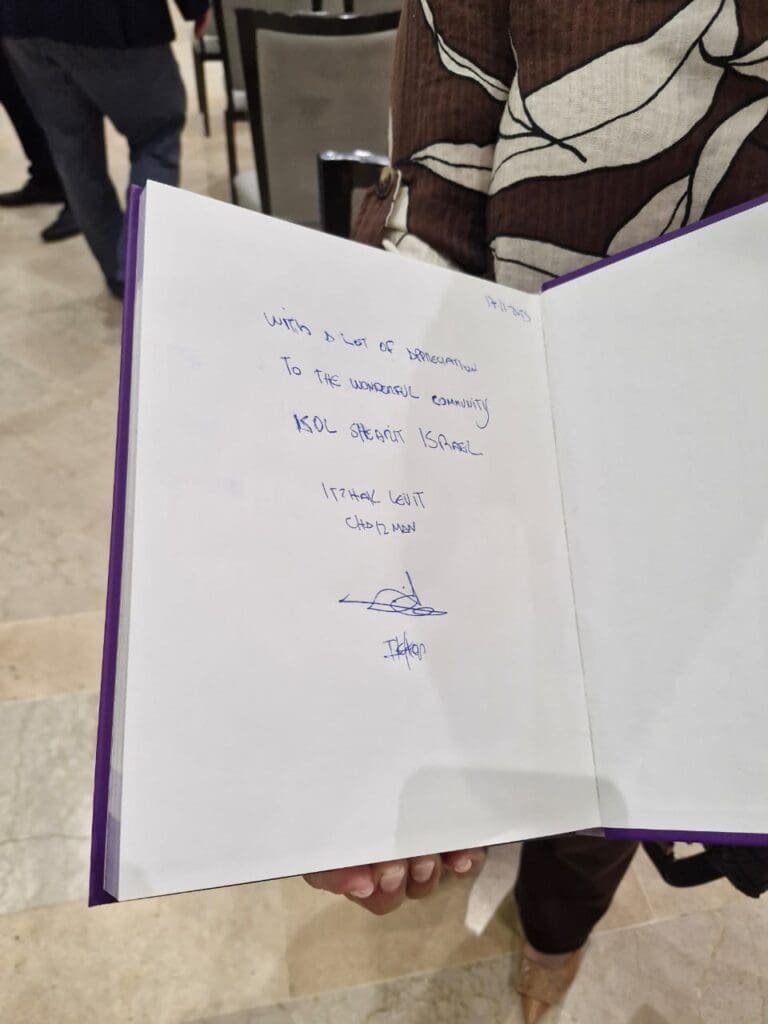 WITH A LOT OF APPRECIATION
TO THE WONDERFUL COMMUNITY
KOL SHEARIT ISRAEL
ITZHAK LEVIT
CHAIRMAN